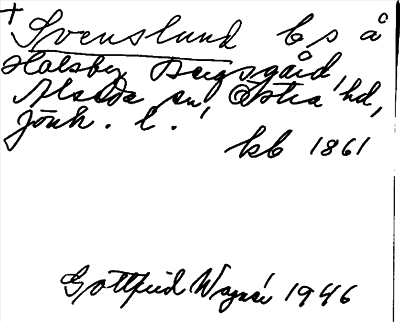 + Svenslund ls å
Holsby Bergsgård,
Alseda sn, Östra hd,
Jönk. l.
kb 1861
Gottfrid Wagnér 1946